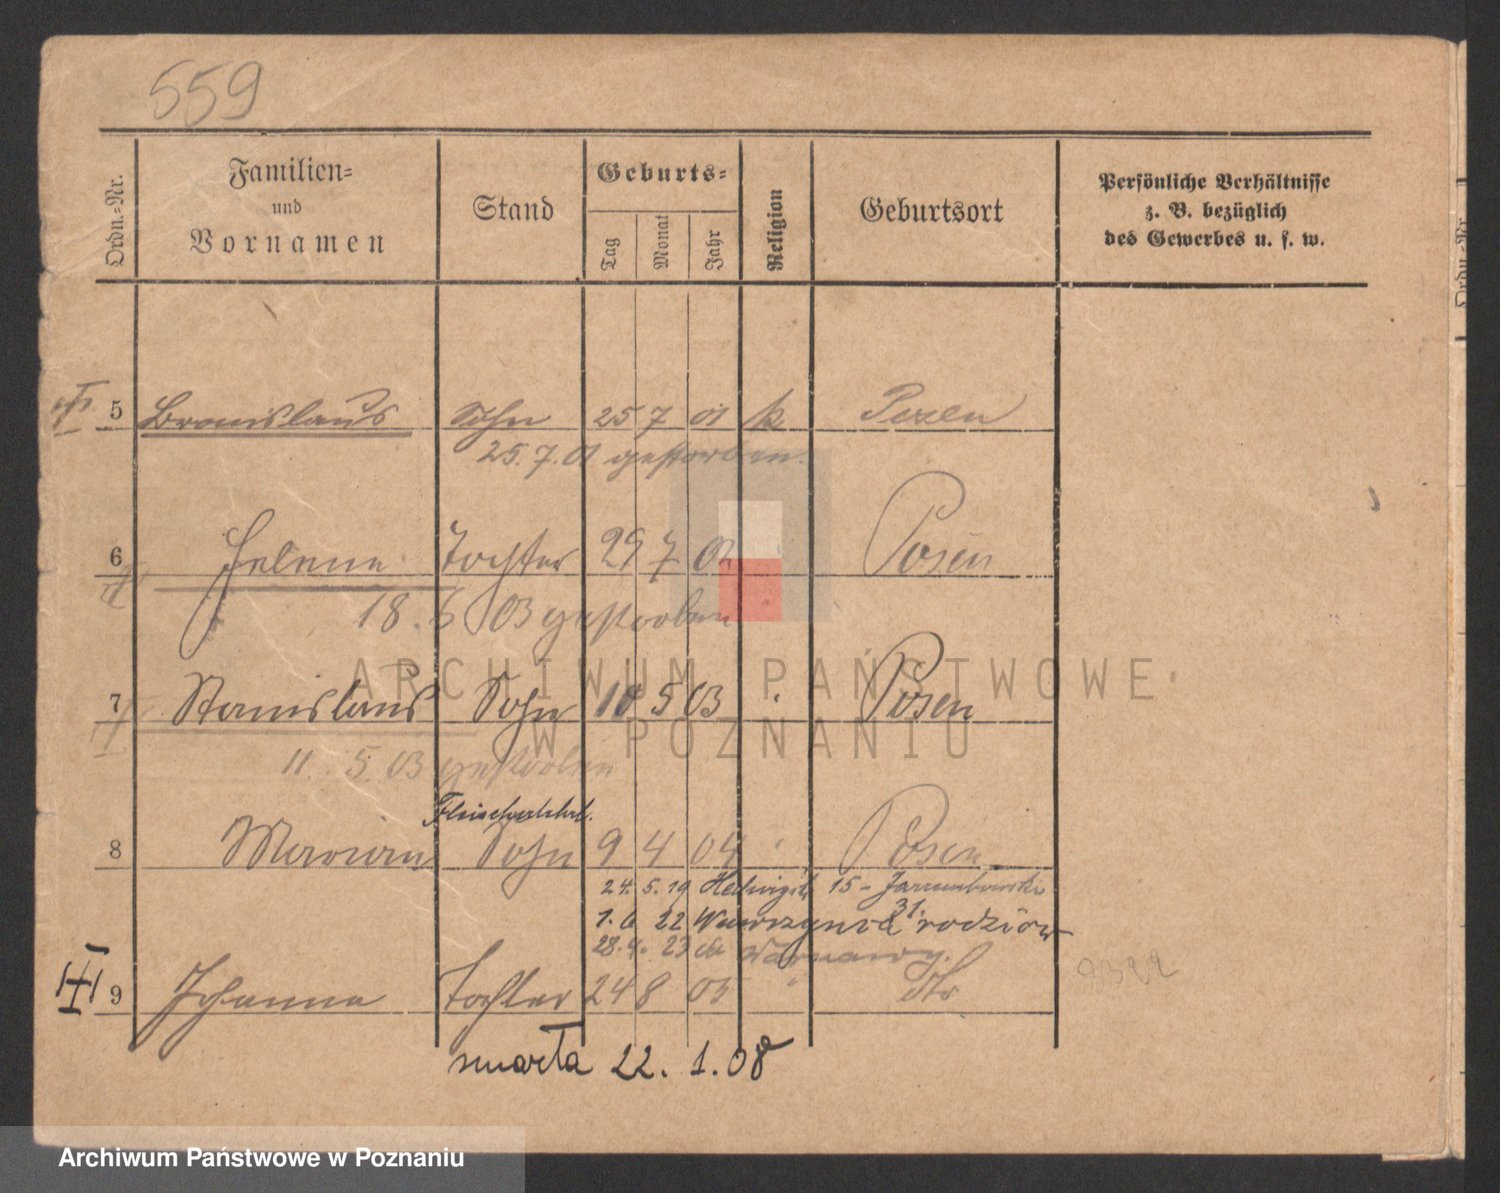 559
Ordn.-Nr.
Familien-
und
Vornamen
Stand
Geburts-
Tag
Monat
Jahr
Religion
Geburtsort
Persönliche Verhältnisse
z. B. bezüglich
des Gewerbes u. s. w.
5 Bronislaus Sohn 25 7 01 k. Posen
25.7.01 gestorben.
6 Helene Tochter 29 7 02 Posen
18.6 03 gestorben
ARCHIWUM PAŃSTWOWE
7 Stanislaus Sohn 10 5 03 Posen
W POZNANIU
11. 5. 03 gestorben
Fleischerlehrl.
8 Marian Sohn 9 4 04 Posen
24. 5. 19 15 -
1. 6 22 31. rodziców
28. 23
9 Johanna Tochter 24 8 05 dto
zmarła 22. 1. 08
Ordn.-Nr.
Archiwum Państwowe w Poznaniu